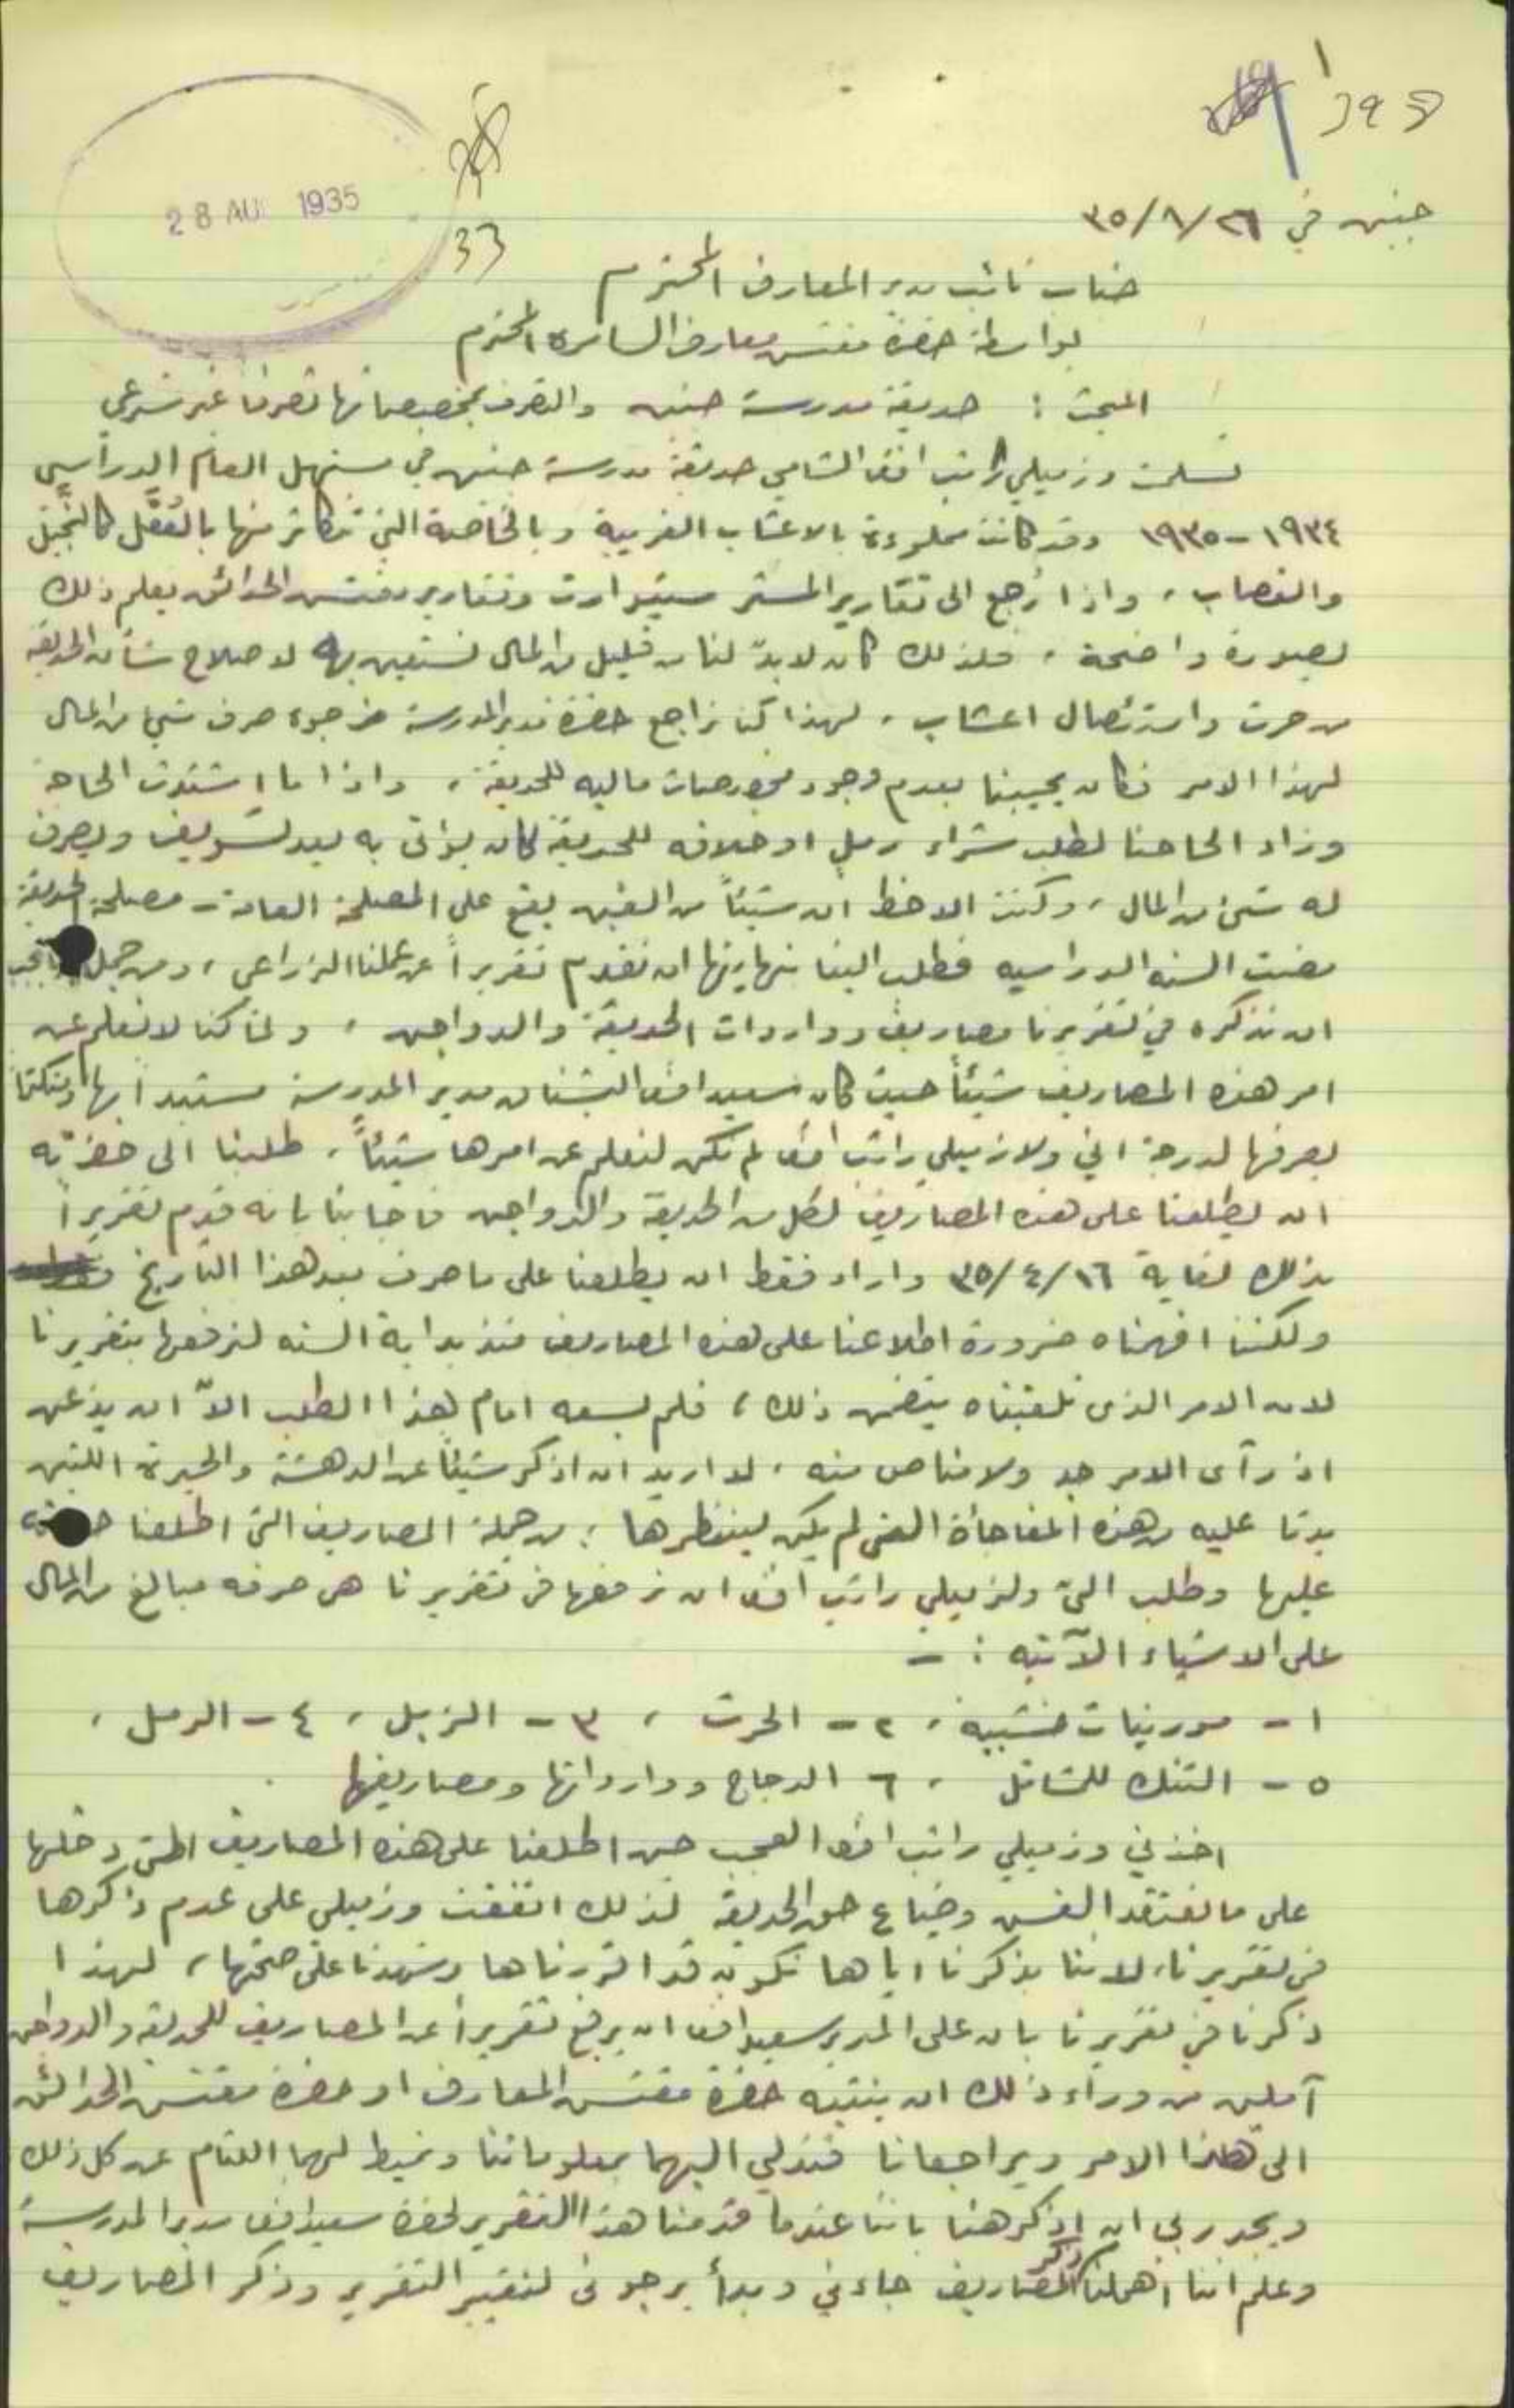 28 AU 1935
33
جنين في ٢٦/٨/٣٥
جناب نائب مدير المعارف المحترم
بواسطة حضرة مفتش معارف السامرة المحترم
المبحث : حديقة مدرسة جنين والتصرف بمخصصاتها تصرفا غير شرعي
تسلمت وزميلي راتب افندي الشامي حديقة مدرسة جنين في مستهل العام الدراسي
١٩٣٤ - ١٩٣٥ وقد كانت مملوءة بالاعشاب الغريبة وبالخاصة التي تتكاثر منها بالعُقَل كالنَّجيل
والقصاب ، واذا رُجع الى تقارير المستر ستيوارت وتقارير مفتش الحدائق يعلم ذلك
بصورة واضحة ، فلذلك كان لا بدّ لنا من قليل من المال نستعين به لاصلاح شأن الحديقة
من حرث واستئصال اعشاب ، لهذا كنا نراجع حضرة مدير المدرسة نرجوه صرف شيء من المال
لهذا الامر فكان يجيبنا بعدم وجود مخصصات ماليه للحديقة ، واذا ما اشتدت الحاجة
وزاد الحاحنا لطلب شراء رمل او خلافه للحديقة كان يؤتى به بعد تسويف ويصرف
له شيء من المال ، وكنت الاحظ ان شيئاً من الغبن يقع على المصلحة العامة - مصلحة الحديقة
مضت السنه الدراسيه فطلب الينا بنهايتها ان نقدم تقريراً عن عملنا الزراعي ، ومن جملة ما يجب
ان نذكره في تقريرنا مصاريف وواردات الحديقة والدواجن ، ولما كنا لا نعلم عن
امر هذه المصاريف شيئاً حيث كان سعيد افندي البشناق مدير المدرسة مستبداً بها ومتكتماً
بصرفها لدرجة اني ولا زميلي راتب افندي لم نكن لنعلم عن امرها شيئاً ، طلبنا الى حضرته
ان يطلعنا على هذه المصاريف لكل من الحديقة والدواجن فاجابنا بانه قدم تقريراً
بذلك لغاية ١٦/٤/٣٥ واراد فقط ان يطلعنا على ما صرف بعد هذا التاريخ
ولكننا افهمناه ضرورة اطلاعنا على هذه المصاريف منذ بداية السنه لنرفعها بتقريرنا
لان الامر الذي تلقيناه يتضمن ذلك ، فلم يسعه امام هذا الطلب الاّ ان يذعن
اذ رآى الامر جد ولا مناص منه ، لا اريد ان اذكر شيئاً عن الدهشة والحيرة اللتين
بدتا عليه من هذه المفاجأة التي لم يكن لينتظرها ؛ من جملة المصاريف التي اطلعنا حضرته
عليها وطلب اليّ ولزميلي راتب افندي ان نرفعها في تقريرنا هي صرفه مبالغ من المال
على الاشياء الآتيه : -
١ - مورينات خشبيه ، ٢ - الحرث ، ٣ - الزبل ، ٤ - الرمل ،
٥ - التنك للمشاتل ، ٦ الدجاج ووارداتها ومصاريفها .
اخذني وزميلي راتب افندي العجب حين اطلعنا على هذه المصاريف التي دخلها
على ما نعتقد الغبن وضياع حق الحديقة لذلك اتفقت وزميلي على عدم ذكرها
في تقريرنا، لاننا بذكرنا اياها نكون قد اقررناها وشهدنا على صحتها ، لهذا
ذكرنا في تقريرنا بان على المدير سعيد افندي ان يرفع تقريراً عن المصاريف للحديقة والدواجن
آملين من وراء ذلك ان ينتبه حضرة مفتش المعارف او حضرة مفتش الحدائق
الى هذا الامر ويراجعانا فندلي اليهما بمعلوماتنا ونميط لهما اللثام عن كل ذلك
ويجدر بي ان اذكر هنا باننا عندما قدمنا هذا التقرير لحضرة سعيد افندي مدير المدرسة
وعلم اننا اهملنا ذكر المصاريف جاءني وبدأ يرجوني لتغيير التقرير وذكر المصاريف